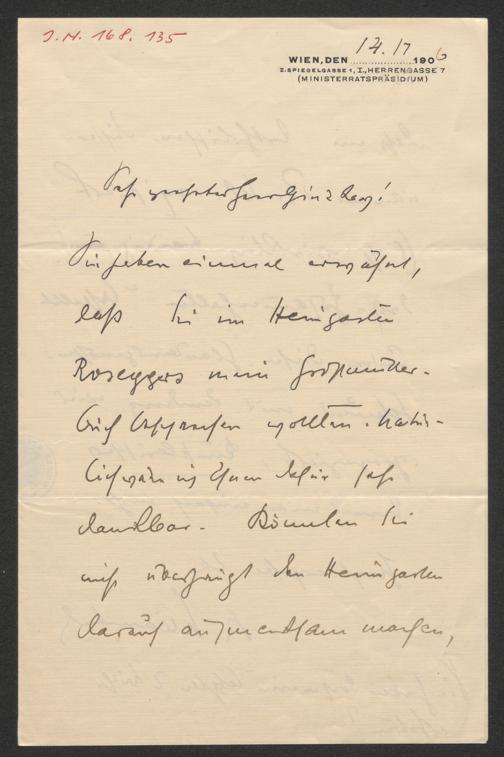 J.N. 168.135
WIEN, DEN 14./7 1906
I. SPIEGELGASSE 1, I., HERRENGASSE 7
(MINISTERRATSPRÄSIDIUM)
Sehr geehrter Herr Ginzkey!
Sie haben einmal erwähnt,
daß Sie im Heimgarten
Roseggers mein Großmutter-
buch besprechen wollten. Natür-
lich wäre ich Ihnen dafür sehr
dankbar. Könnten Sie
nicht überhaupt den Heimgarten
darauf aufmerksam machen,